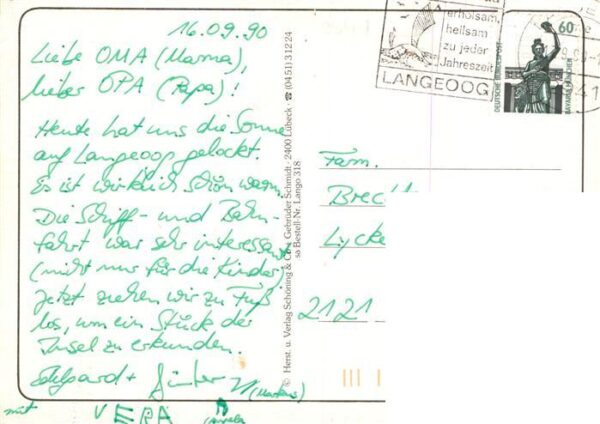 16.09.90
Liebe OMA (Mama),
lieber OPA (Papa)!
Heute hat uns die Sonne
auf Langeoog gelockt.
Es ist wirklich schön warm.
Die Schiff- und Bahn-
fahrt war sehr interessant
(nicht nur für die Kinder)
Jetzt ziehen wir zu Fuß
los, um ein Stück der
Insel zu erkunden.
+ Günter (Markus)
mit VERA
© Herst. u. Verlag Schöning & Co + Gebrüder Schmidt · 2400 Lübeck · ☎ (0451) 31224
sa Bestell-Nr. Lango 318
erholsam,
heilsam
zu jeder
Jahreszeit
LANGEOOG
60
DEUTSCHE BUNDESPOST
BAVARIA MÜNCHEN
Fam.
Brec
Lycke
2121